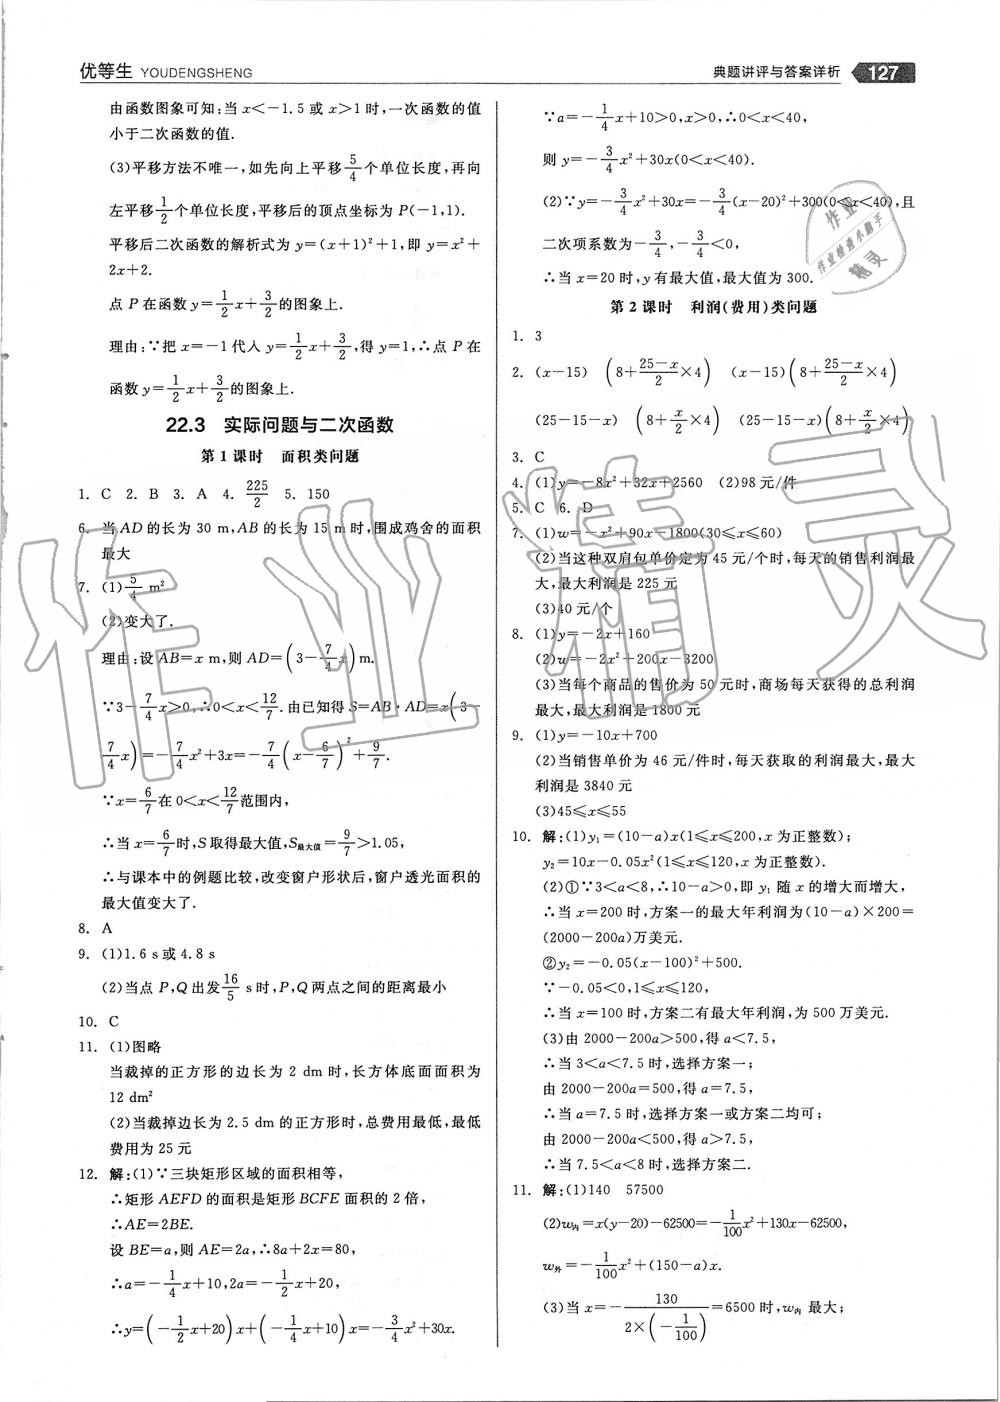 优等生 YOUDENGSHENG
典题讲评与答案详析 127
由函数图象可知:当 x<-1.5 或 x>1 时,一次函数的值
小于二次函数的值.
(3)平移方法不唯一,如先向上平移 5/4 个单位长度,再向
左平移 1/2 个单位长度,平移后的顶点坐标为 P(-1,1).
平移后二次函数的解析式为 y=(x+1)²+1,即 y=x²+
2x+2.
点 P 在函数 y=1/2x+3/2 的图象上.
理由:∵把 x=-1 代入 y=1/2x+3/2,得 y=1,∴点 P 在
函数 y=1/2x+3/2 的图象上.
22.3 实际问题与二次函数
第 1 课时 面积类问题
1. C 2. B 3. A 4. 225/2 5. 150
6. 当 AD 的长为 30 m,AB 的长为 15 m 时,围成鸡舍的面积
最大
7. (1)5/4 m²
(2)变大了.
理由:设 AB=x m,则 AD=(3-7/4x) m.
∵3-7/4x>0,∴0<x<12/7.由已知得 S=AB·AD=x(3-
7/4x)=-7/4x²+3x=-7/4(x-6/7)²+9/7.
∵x=6/7 在 0<x<12/7 范围内,
∴当 x=6/7 时,S 取得最大值,S最大值=9/7>1.05,
∴与课本中的例题比较,改变窗户形状后,窗户透光面积的
最大值变大了.
8. A
9. (1)1.6 s 或 4.8 s
(2)当点 P,Q 出发 16/5 s 时,P,Q 两点之间的距离最小
10. C
11. (1)图略
当裁掉的正方形的边长为 2 dm 时,长方体底面面积为
12 dm²
(2)当裁掉边长为 2.5 dm 的正方形时,总费用最低,最低
费用为 25 元
12. 解:(1)∵三块矩形区域的面积相等,
∴矩形 AEFD 的面积是矩形 BCFE 面积的 2 倍,
∴AE=2BE.
设 BE=a,则 AE=2a,∴8a+2x=80,
∴a=-1/4x+10,2a=-1/2x+20,
∴y=(-1/2x+20)x+(-1/4x+10)x=-3/4x²+30x.
∵a=-1/4x+10>0,x>0,∴0<x<40,
则 y=-3/4x²+30x(0<x<40).
(2)∵y=-3/4x²+30x=-3/4(x-20)²+300(0<x<40),且
二次项系数为-3/4,-3/4<0,
∴当 x=20 时,y 有最大值,最大值为 300.
第 2 课时 利润(费用)类问题
1. 3
2. (x-15) (8+25-x/2×4) (x-15)(8+25-x/2×4)
(25-15-x) (8+x/2×4) (25-15-x)(8+x/2×4)
3. C
4. (1)y=-8x²+32x+2560 (2)98 元/件
5. C 6. D
7. (1)w=-x²+90x-1800(30≤x≤60)
(2)当这种双肩包单价定为 45 元/个时,每天的销售利润最
大,最大利润是 225 元
(3)40 元/个
8. (1)y=-2x+160
(2)w=-2x²+200x-3200
(3)当每个商品的售价为 50 元时,商场每天获得的总利润
最大,最大利润是 1800 元
9. (1)y=-10x+700
(2)当销售单价为 46 元/件时,每天获取的利润最大,最大
利润是 3840 元
(3)45≤x≤55
10. 解:(1)y₁=(10-a)x(1≤x≤200,x 为正整数);
y₂=10x-0.05x²(1≤x≤120,x 为正整数).
(2)①∵3<a<8,∴10-a>0,即 y₁ 随 x 的增大而增大,
∴当 x=200 时,方案一的最大年利润为(10-a)×200=
(2000-200a)万美元.
②y₂=-0.05(x-100)²+500.
∵-0.05<0,1≤x≤120,
∴当 x=100 时,方案二有最大年利润,为 500 万美元.
(3)由 2000-200a>500,得 a<7.5,
∴当 3<a<7.5 时,选择方案一;
由 2000-200a=500,得 a=7.5,
∴当 a=7.5 时,选择方案一或方案二均可;
由 2000-200a<500,得 a>7.5,
∴当 7.5<a<8 时,选择方案二.
11. 解:(1)140 57500
(2)w内=x(y-20)-62500=-1/100x²+130x-62500,
w外=-1/100x²+(150-a)x.
(3)当 x=-130/2×(-1/100)=6500 时,w内 最大;
作业精灵
作业
作业检查小助手
精灵